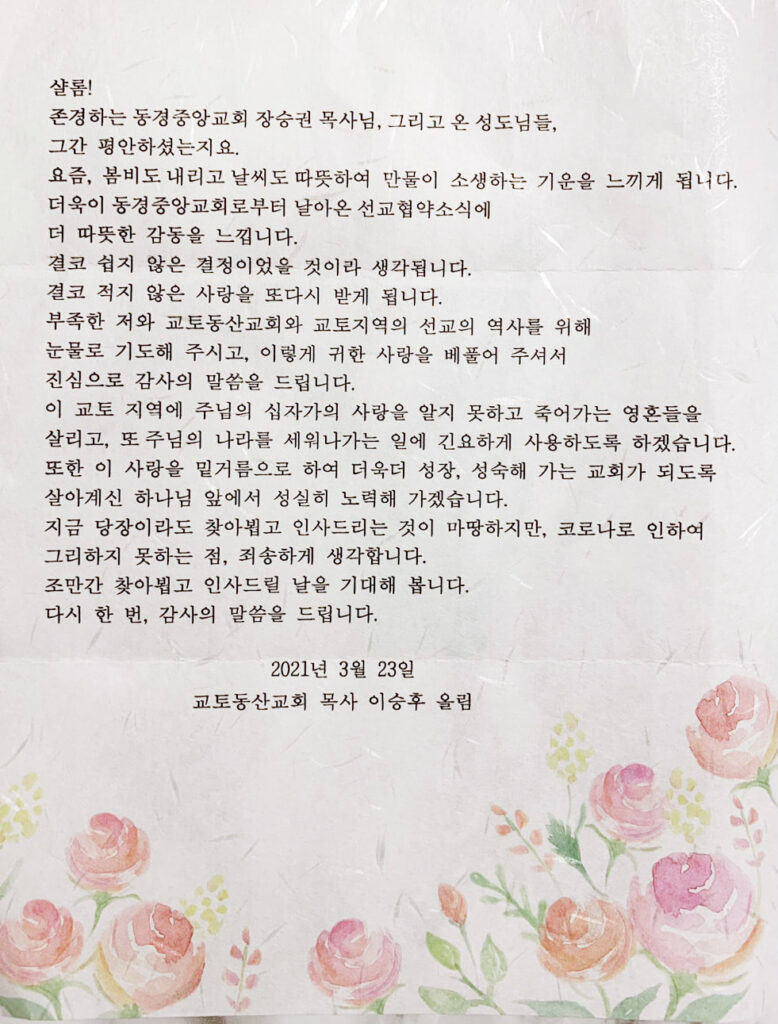 샬롬!
존경하는 동경중앙교회 장승권 목사님, 그리고 온 성도님들,
그간 평안하셨는지요.
요즘, 봄비도 내리고 날씨도 따뜻하여 만물이 소생하는 기운을 느끼게 됩니다.
더욱이 동경중앙교회로부터 날아온 선교협약소식에
더 따뜻한 감동을 느낍니다.
결코 쉽지 않은 결정이었을 것이라 생각됩니다.
결코 적지 않은 사랑을 또다시 받게 됩니다.
부족한 저와 교토동산교회와 교토지역의 선교의 역사를 위해
눈물로 기도해 주시고, 이렇게 귀한 사랑을 베풀어 주셔서
진심으로 감사의 말씀을 드립니다.
이 교토 지역에 주님의 십자가의 사랑을 알지 못하고 죽어가는 영혼들을
살리고, 또 주님의 나라를 세워나가는 일에 긴요하게 사용하도록 하겠습니다.
또한 이 사랑을 밑거름으로 하여 더욱더 성장, 성숙해 가는 교회가 되도록
살아계신 하나님 앞에서 성실히 노력해 가겠습니다.
지금 당장이라도 찾아뵙고 인사드리는 것이 마땅하지만, 코로나로 인하여
그리하지 못하는 점, 죄송하게 생각합니다.
조만간 찾아뵙고 인사드릴 날을 기대해 봅니다.
다시 한 번, 감사의 말씀을 드립니다.
2021년 3월 23일
교토동산교회 목사 이승후 올림